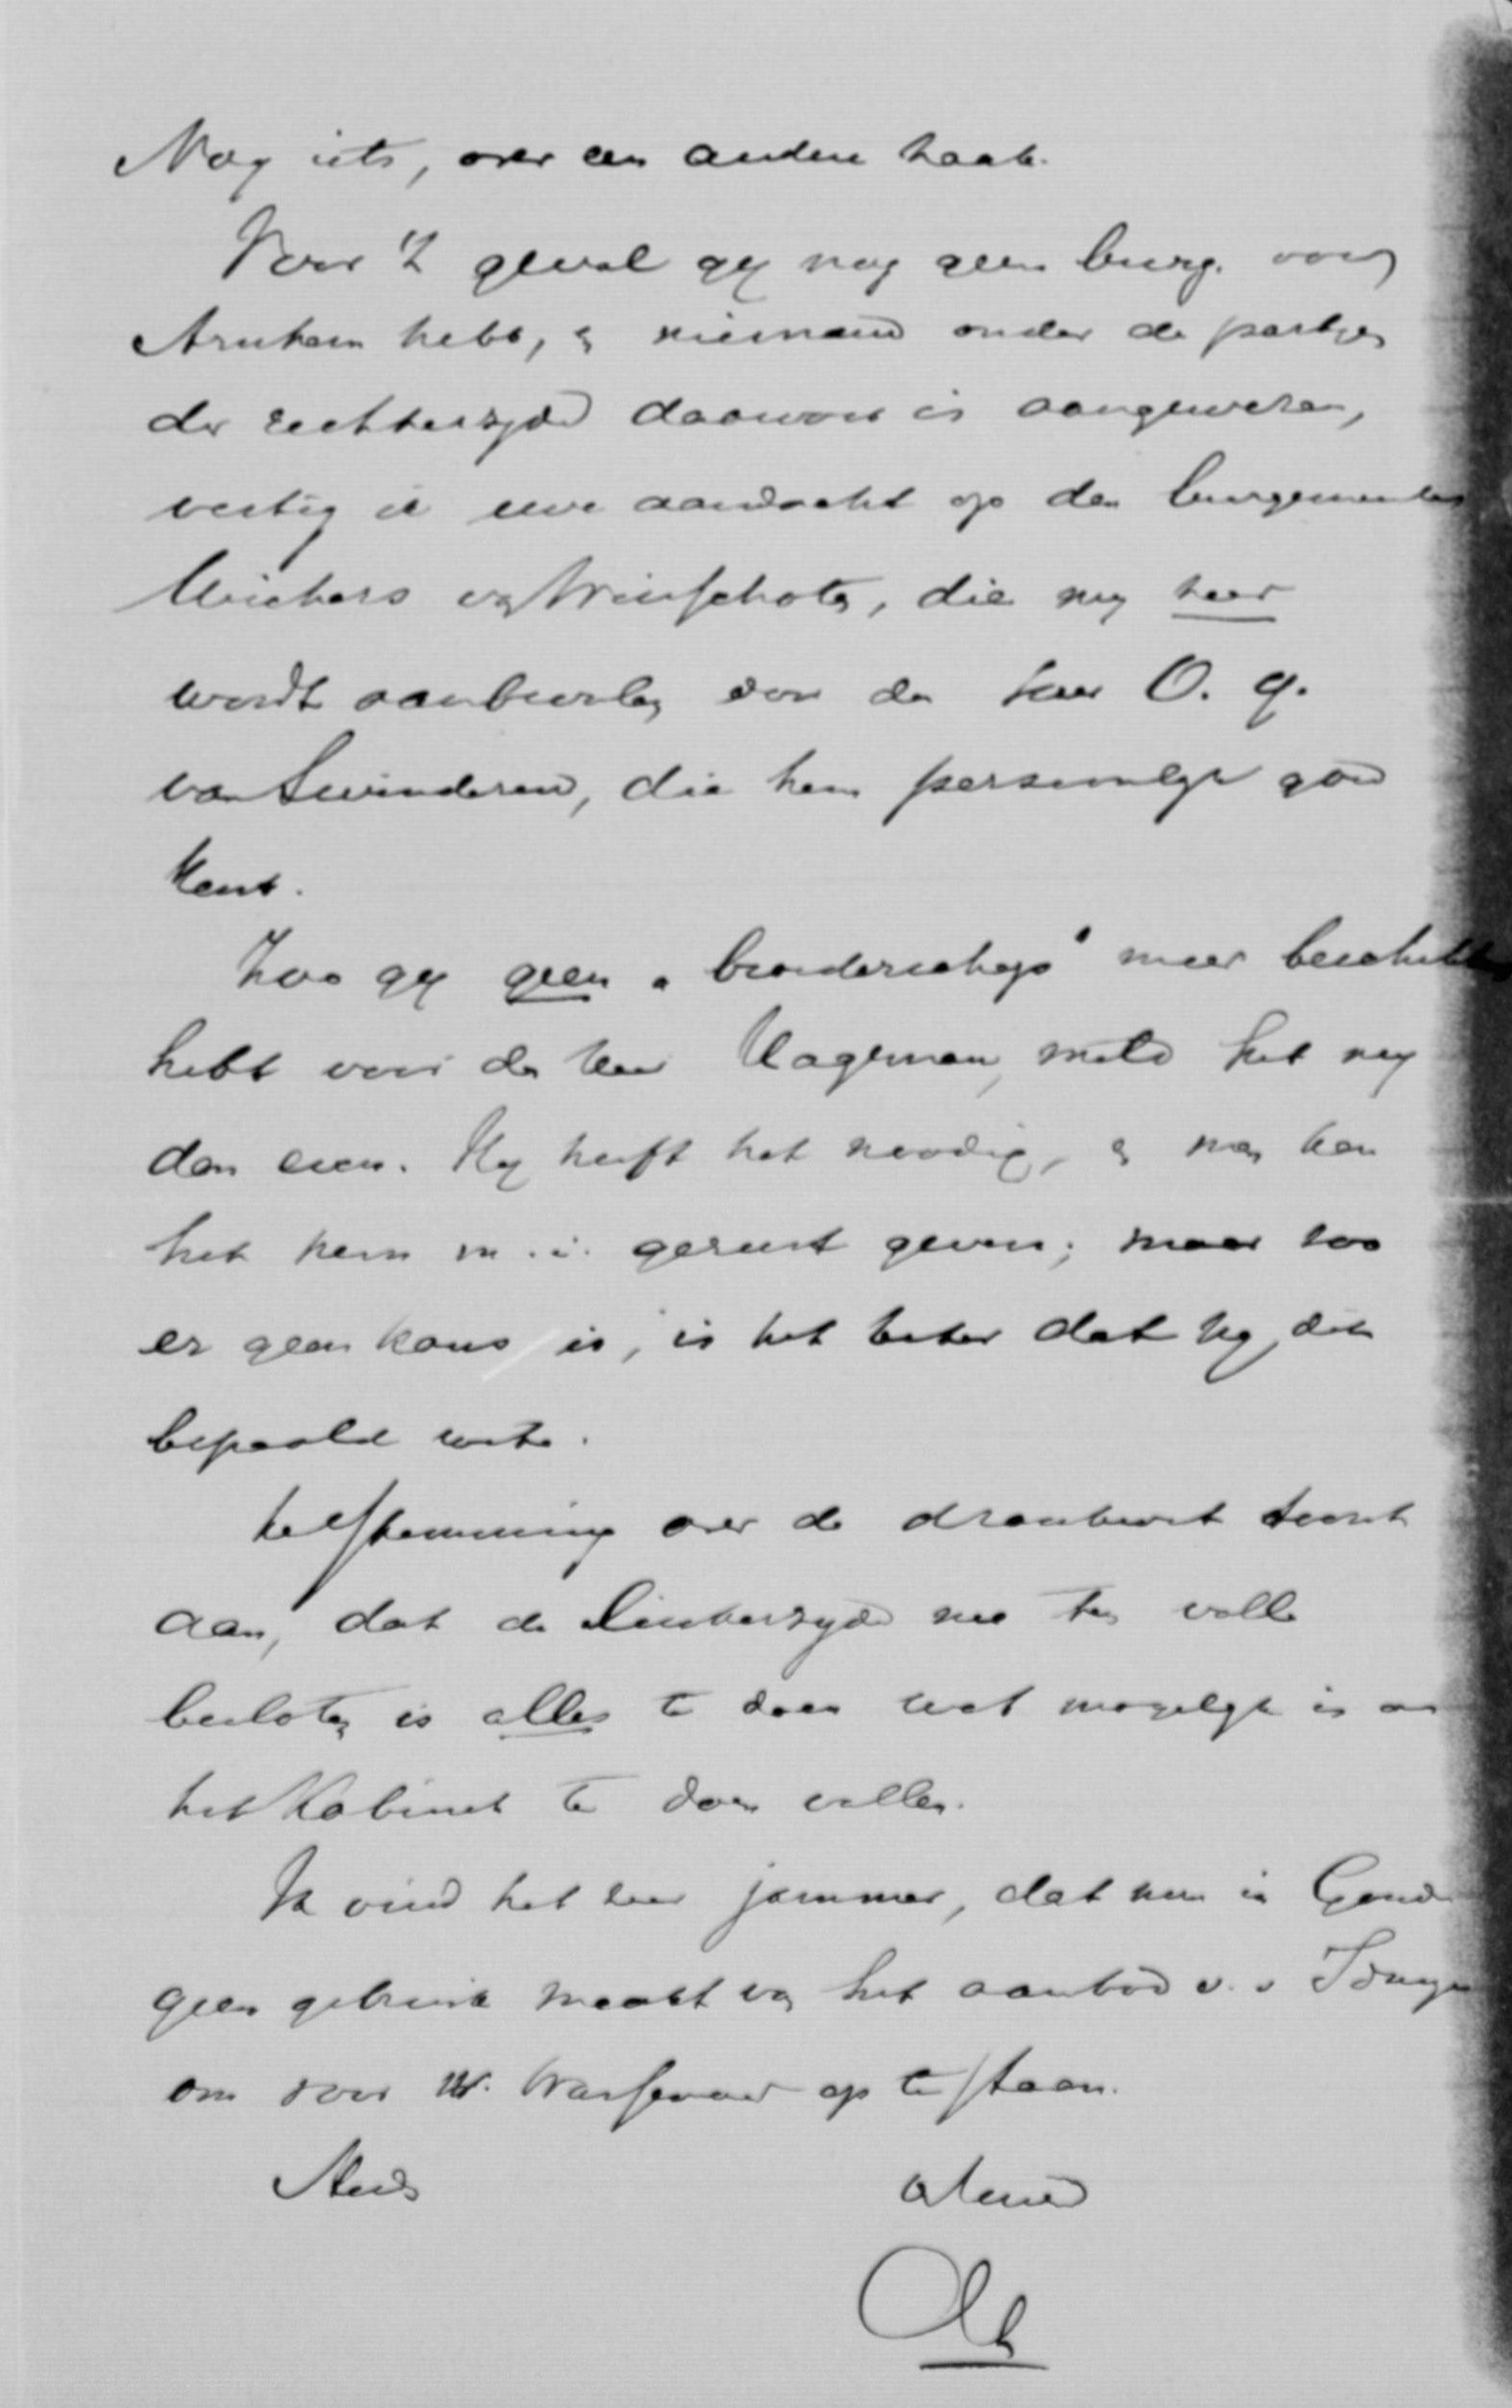 Nog iets, over een andere zaak.
Voor 't geval gij nog geen burg. voor
Arnhem hebt, en niemand onder de partijen
der rechterzijde daarvoor is aangewezen,
vestig ik uwe aandacht op den burgemeester
Wichers van Winschoten, die mij zeer
wordt aanbevolen door den heer O. Q.
van Swinderen, die hem persoonlijk goed
kent.
Zoo gij geen „broederschap" meer beschikbaar
hebt voor den heer Wageman, meld het mij
dan even. Hij heeft het noodig, en men kan
het hem m.i. gerust geven; maar zoo
er geen kans is, is het beter dat hij dit
bepaald wete.
De stemming over de drankwet toont
aan, dat de linkerzijde nu ten volle
besloten is alles te doen wat mogelijk is om
het Kabinet te doen vallen.
Ik vind het zeer jammer, dat men in Gouda
geen gebruik maakt van het aanbod v. v Idsinga
om voor te staan.
Steeds
Lh